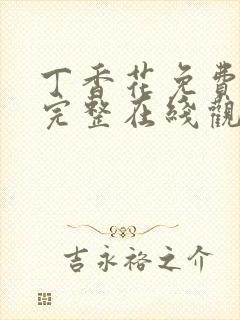 丁香花免費
完整在綫觀
吉永裕之介